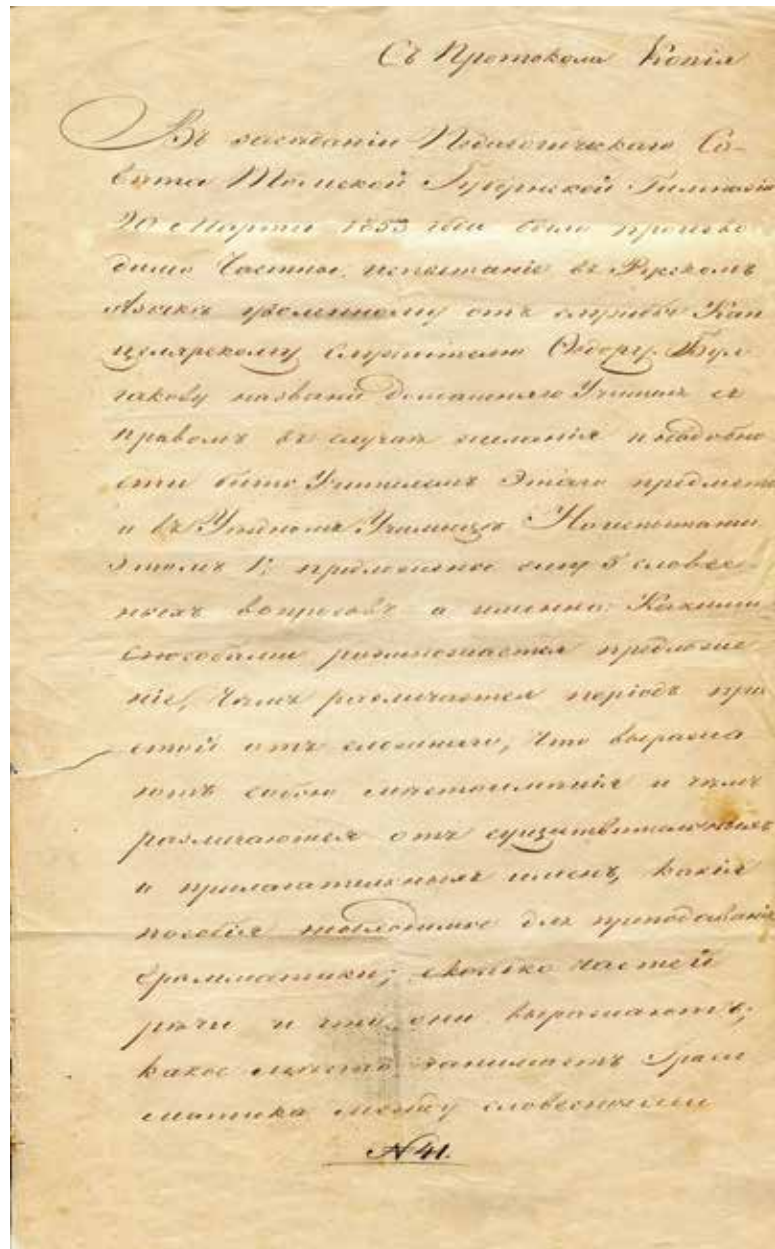 Съ Протокола Копія
Въ заседаніи Педагогическаго Со-
вѣта Томской Губернской Гимназіи
20 Марта 1853 года было произво
димо Частное испытаніе въ Рускомъ
Языкѣ уволенному отъ службы Кан
целярскому Служителю Ѳедору Бул
гакову названія домашняго Учителя съ
правомъ въ случаѣ желанія и надобно
сти быть Учителемъ Этаго предмета
и въ Уѣздномъ Училищѣ На испытаніи
Этомъ 1; предложено ему 5 словес-
ныхъ вопросовъ а именно: Какими
способами распознается предложе
ніе, Чѣмъ различается періодъ про
стой отъ сложнаго, Что выража
ютъ собою мѣстоименія и чѣмъ
различаются отъ существительныхъ
и прилагательныхъ именъ, какія
пособія необходимы для преподаванія
Грамматики; сколько частей
рѣчи и что они выражаютъ;
какое мѣсто занимаетъ Грам
матика между словесными
N 41.